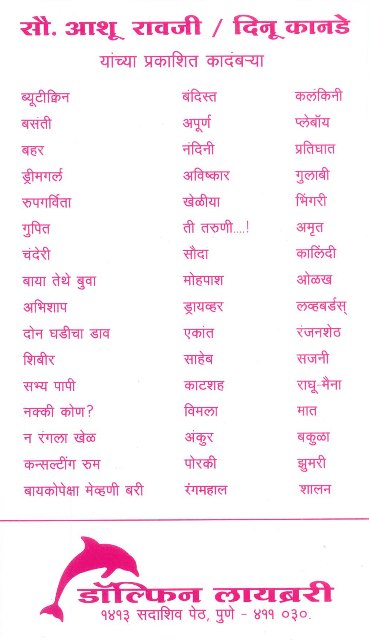 सौ. आशू रावजी / दिनू कानडे
यांच्या प्रकाशित कादंबऱ्या
ब्यूटीक्विन बंदिस्त कलंकिनी
बसंती अपूर्ण प्लेबॉय
बहर नंदिनी प्रतिघात
ड्रीमगर्ल अविष्कार गुलाबी
रुपगर्विता खेळीया भिंगरी
गुपित ती तरुणी....! अमृत
चंदेरी सौदा कालिंदी
बाया तेथे बुवा मोहपाश ओळख
अभिशाप ड्रायव्हर लव्हबर्डस्
दोन घडीचा डाव एकांत रंजनशेठ
शिबीर साहेब सजनी
सभ्य पापी काटशह राघू-मैना
नक्की कोण? विमला मात
न रंगला खेळ अंकुर बकुळा
कन्सल्टींग रुम पोरकी झुमरी
बायकोपेक्षा मेव्हणी बरी रंगमहाल शालन
डॉल्फिन लायब्ररी
१४१३ सदाशिव पेठ, पुणे - ४११ ०३०.